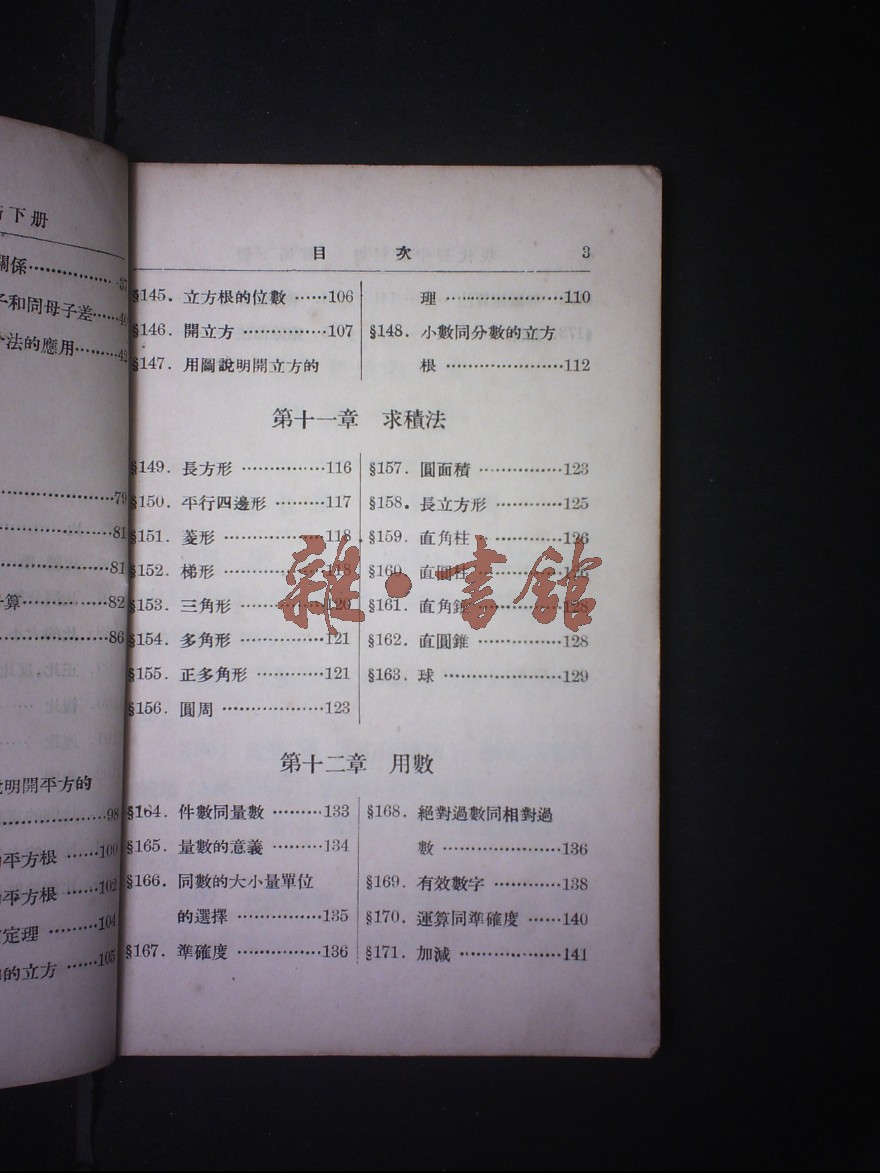 術下册
關係……………37
子和問母子差……40
分法的應用………42
……………79
……………81
……………81
計算……………82
……………86
說明開平方的
……………98
的平方根……100
的平方根……102
定理……104
的立方……105
目次 3
§145. 立方根的位數……106
§146. 開立方……………107
§147. 用圖說明開立方的
理……………………110
§148. 小數同分數的立方
根……………………112
第十一章 求積法
§149. 長方形……………116
§150. 平行四邊形………117
§151. 菱形………………118
§152. 梯形………………118
§153. 三角形……………120
§154. 多角形……………121
§155. 正多角形…………121
§156. 圓周………………123
§157. 圓面積……………123
§158. 長立方形…………125
§159. 直角柱……………126
§160. 直圓柱……………126
§161. 直角錐……………128
§162. 直圓錐……………128
§163. 球…………………129
雜·書館
第十二章 用數
§164. 件數同量數………133
§165. 量數的意義………134
§166. 同數的大小量單位
的選擇……………135
§167. 準確度……………136
§168. 絕對過數同相對過
數…………………136
§169. 有效數字…………138
§170. 運算同準確度……140
§171. 加減………………141